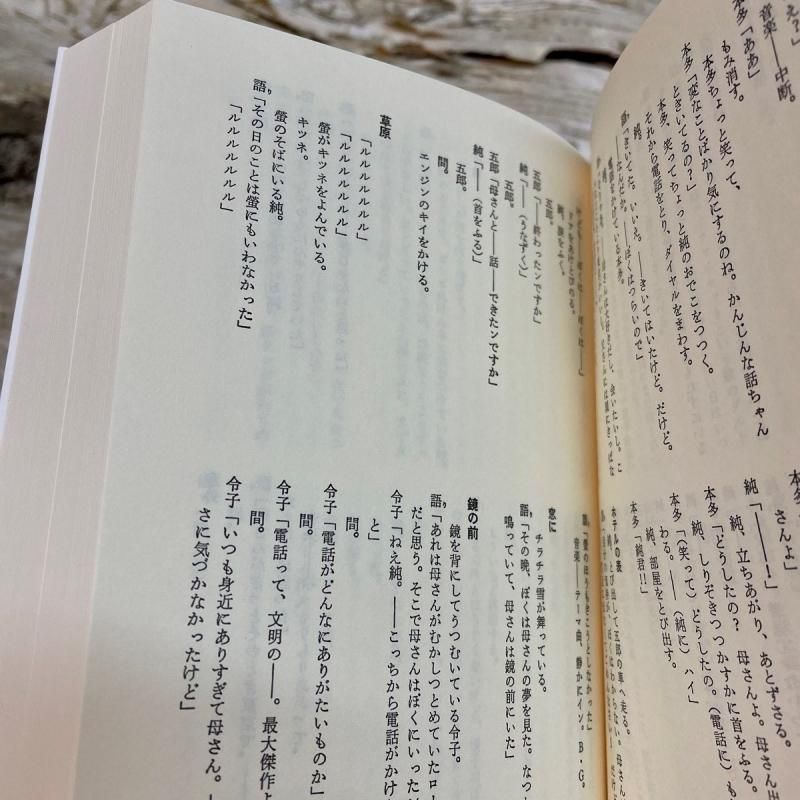 え？」
音楽――中断。
本多「ああ」
もみ消す。
本多ちょっと笑って、
本多「変なことばかり気にするのね。かんじんな話ちゃん
ときいてるの？」
本多、笑ってちょっと純のおでこをつつく。
それから電話をとり、ダイヤルをまわす。
純。
語「きいてた。いいえ。――きいてはいたけど。だけど。
――なんだか。――ぼくはつらいので」
電話をかけている本多。
本多
さんよ」
純「――！」
純、立ちあがり、あとずさる。
本多「どうしたの？　母さんよ。母さん出
純、しりぞきつつかすかに首をふる。
本多「（笑って）どうしたの。（電話に）も
わる。――（純に）ハイ」
純、部屋をとび出す。
本多「純君!!」
ホテルの表
とび出して五郎の車へ走る。
純、涙をふく。
五郎。
五郎「――終わったンですか」
純「――（うなずく）」
五郎。
五郎「母さんと――話――できたンですか」
純「――（首をふる）」
五郎。
間。
エンジンのキイをかける。
草原
「ルルルルルルル」
「ルルルルルルル」
螢がキツネをよんでいる。
キツネ。
螢のそばにいる純。
語「その日のことは螢にもいわなかった」
「ルルルルルルル」
音楽――テーマ曲、静かにイン。B・G。
窓に
チラチラ雪が舞っている。
語「その晩、ぼくは母さんの夢を見た。なつ
鳴っていて、母さんは鏡の前にいた」
鏡の前
鏡を背にしてうつむいている令子。
語「あれは母さんがむかしつとめていたロー
だと思う。そこで母さんはぼくにいった
令子「ねえ純。――こっちから電話がかけ
と」
間。
令子「電話がどんなにありがたいものか」
間。
令子「電話って、文明の――。最大傑作よ
間。
令子「いつも身近にありすぎて母さん。
さに気づかなかったけど」